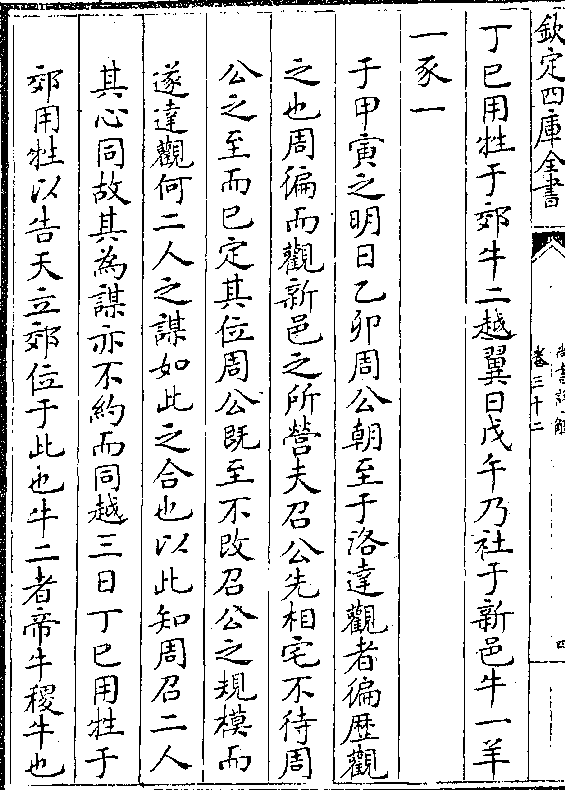 欽定四庫全書
尚書詳解
卷三十二
四
丁巳用牲于郊牛二越翼日戊午乃社于新邑牛一羊
一豕一
于甲寅之明日乙卯周公朝至于洛達觀者徧歴觀
之也周徧而觀新邑之所營夫召公先相宅不待周
公之至而已定其位周公既至不改召公之規模而
遂達觀何二人之謀如此之合也以此知周召二人
其心同故其為謀亦不約而同越三日丁巳用牲于
郊用牲以告天立郊位于此也牛二者帝牛稷牛也